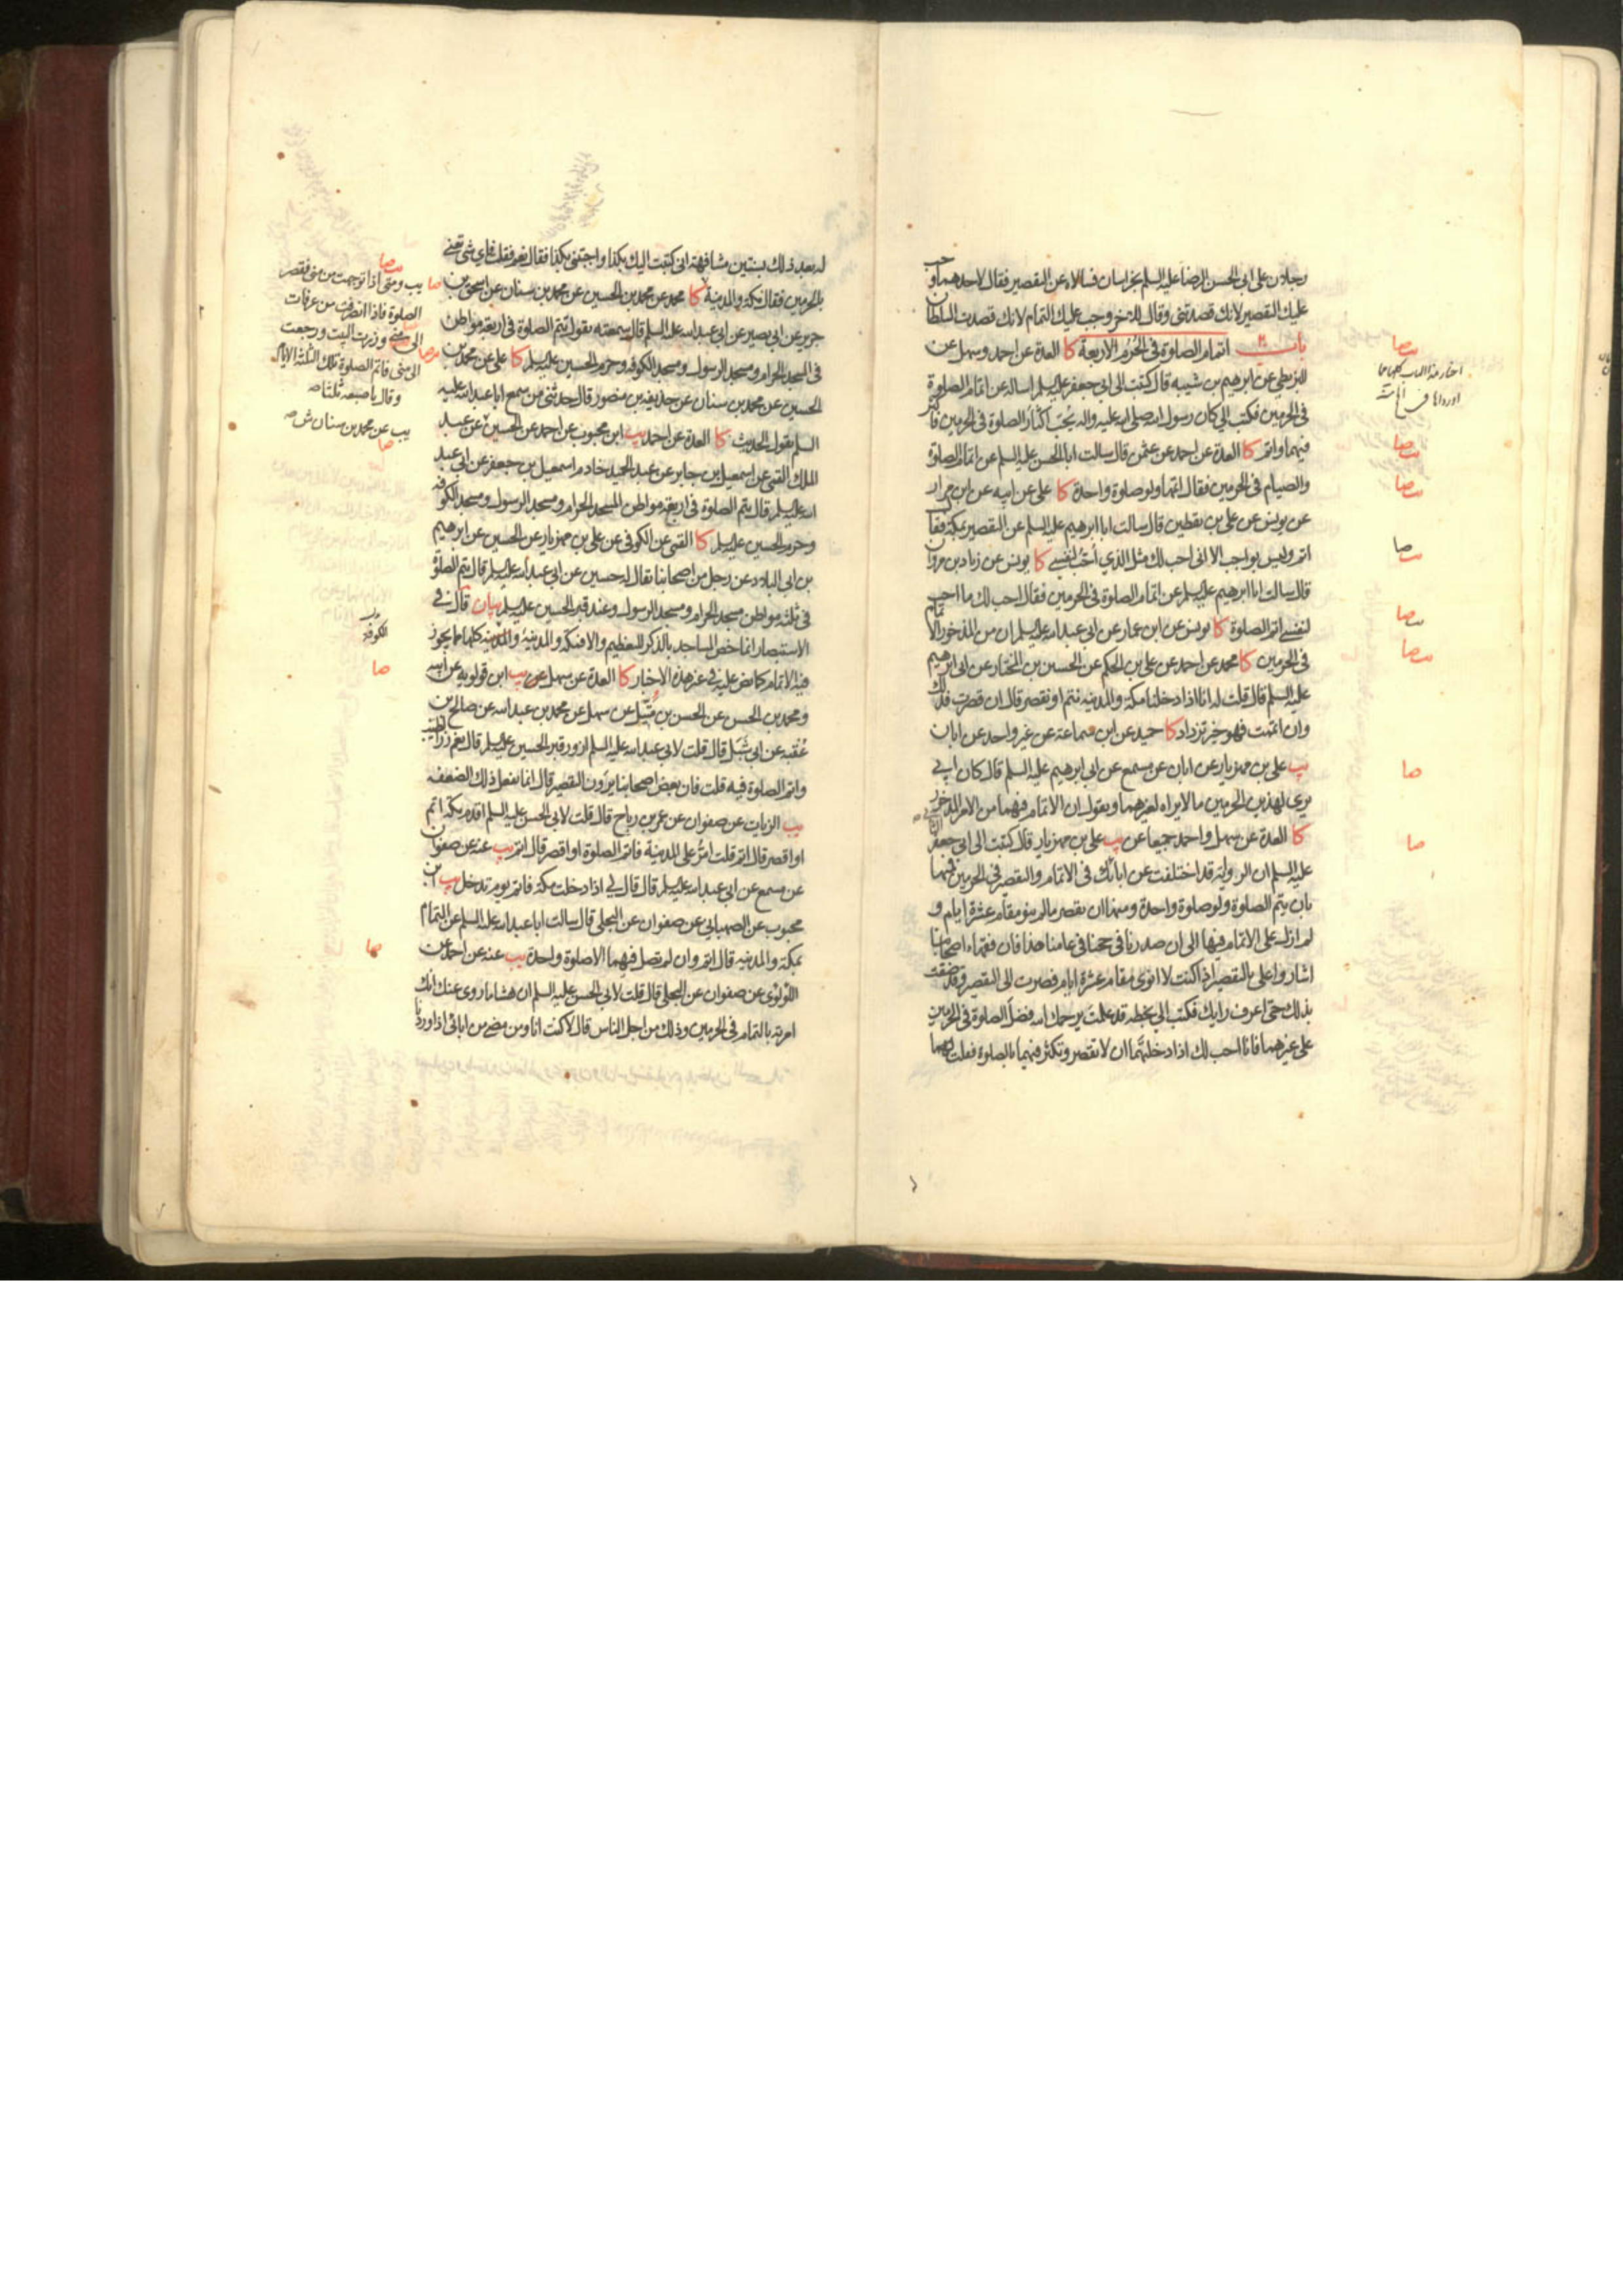 رجلان على ابى الحسن الرضا عليه السلم بخراسان فسالاه عن التقصير فقال لاحدهما وجب
عليك التقصير لانك قصدتنى وقال للاخر وجب عليك التمام لانك قصدت السلطان
باب اتمام الصلوة فى الحُرُم الاربعة كا العدة عن احمد وسهل عن
البزنطي عن ابرهيم بن شيبه قال كتبت الى ابى جعفر عليه السلم اساله عن اتمام الصلوة
فى الحرمين فكتب الي كان رسول الله صلى الله عليه واله يحب اكثار الصلوة فى الحرمين فاكثر
فيهما واتم كا العدة عن احمد عن عثمن قال سالت ابا الحسن عليه السلم عن اتمام الصلوة
والصيام فى الحرمين فقال اتمها ولو صلوة واحدة كا على عن ابيه عن ابن مرار
عن يونس عن على بن يقطين قال سالت ابا ابرهيم عليه السلم عن التقصير بمكة فقال
اتم وليس بواجب الا انى احب لك مثل الذي احب لنفسي كا يونس عن زياد بن مروان
قال سالت ابا ابرهيم عليه السلم عن اتمام الصلوة فى الحرمين فقال احب لك ما احب
لنفسي اتم الصلوة كا يونس عن ابن عمار عن ابى عبد الله عليه السلم ان من المذخور الاتمام
فى الحرمين كا محمد عن احمد عن على بن الحكم عن الحسين بن المختار عن ابى ابرهيم
عليه السلم قال قلت له انا اذا دخلنا مكة والمدينه نتم او نقصر قال ان قصرت فذلك
وان اتممت فهو خير تزداد كا حميد عن ابن سماعة عن غير واحد عن ابان
يب على بن مهزيار عن ابان عن مسمع عن ابى ابرهيم عليه السلم قال كان ابي
يرى لهذين الحرمين ما لا يراه لغيرهما ويقول ان الاتمام فيهما من الامر المذخور
كا العدة عن سهل واحمد جميعا عن يب على بن مهزيار قال كتبت الى ابى جعفر الثانى
عليه السلم ان الرواية قد اختلفت عن ابائك فى الاتمام والتقصير فى الحرمين فمنها
بان يتم الصلوة ولو صلوة واحدة ومنها ان يقصر ما لم ينو مقام عشرة ايام و
لم ازل على الاتمام فيها الى ان صدرنا فى حجنا فى عامنا هذا فان فقهاء اصحابنا
اشاروا على بالتقصير اذا كنت لا انوى مقام عشرة ايام فصرت الى التقصير وقد ضقت
بذلك حتى اعرف رايك فكتب الي بخطه قد علمت يرحمك الله فضل الصلوة فى الحرمين
على غيرهما فانا احب لك اذا دخلتهما ان لا تقصر وتكثر فيهما بالصلوة فقلت
صا
اخبار هذا الباب كلها مما
صا
صا
صا
صا
صا
صا
صا
له بعد ذلك بسنتين مشافهة انى كتبت اليك بكذا واجبتنى بكذا فقال نعم فقلت فاى شئ تعنى
بالحرمين فقال مكة والمدينة كا محمد عن محمد بن الحسين عن محمد بن سنان عن اسحق بن
جرير عن ابى بصير عن ابى عبد الله عليه السلم قال سمعته يقول تتم الصلوة فى اربعة مواطن
فى المسجد الحرام ومسجد الرسول ومسجد الكوفه وحرم الحسين عليه السلم كا على عن محمد بن
الحسين عن محمد بن سنان عن حذيفه بن منصور قال حدثنى من سمع ابا عبد الله عليه
السلم يقول الحديث كا العدة عن احمد يب ابن محبوب عن احمد عن الحسين عن عبد
الملك القمى عن اسمعيل بن جابر عن عبد الحميد خادم اسمعيل بن جعفر عن ابى عبد
الله عليه السلم قال تتم الصلوة فى اربعة مواطن المسجد الحرام ومسجد الرسول ومسجد الكوفه
وحرم الحسين عليه السلم كا القمى عن الكوفى عن على بن مهزيار عن الحسين عن ابرهيم
بن ابى البلاد عن رجل من اصحابنا يقال له حسين عن ابى عبد الله عليه السلم قال تتم الصلوة
فى ثلثه مواطن مسجد الحرام ومسجد الرسول وعند قبر الحسين عليه السلم بيان قال في
الاستبصار انما خص المساجد بالذكر للتعظيم والا فمكة والمدينة كلها مما يجوز
فيه الاتمام كما نص عليه فى غير هذه الاخبار كا العدة عن سهل عن يب ابن قولويه عن ابيه
ومحمد بن الحسن عن الحسن بن متيل عن سهل عن محمد بن عبد الله عن صالح بن
عُقبه عن ابى شبل قال قلت لابى عبد الله عليه السلم ازور قبر الحسين عليه السلم قال نعم زر الطيب
واتم الصلوة فيه قلت فان بعض اصحابنا يرون التقصير قال انما يفعل ذلك الضعفه
يب الزيات عن صفوان عن عمر بن رباح قال قلت لابى الحسن عليه السلم اقدم مكة اتم
او اقصر قال اتم قلت امر على المدينة فاتم الصلوة او اقصر قال اتم يب عنه عن صفوان
عن مسمع عن ابى عبد الله عليه السلم قال قال لي اذا دخلت مكة فاتم يوم تدخل يب ابن
محبوب عن الصهبانى عن صفوان عن البجلى قال سالت ابا عبد الله عليه السلم عن التمام
بمكة والمدينه قال اتم وان لم تصل فيهما الا صلوة واحدة يب عنه عن احمد عن
اللؤلؤى عن صفوان عن البجلى قال قلت لابى الحسن عليه السلم ان هشاما روى عنك انك
امرته بالتمام فى الحرمين وذلك من اجل الناس قال لا كنت انا ومن مضى من ابائى اذا وردنا
صا
صا يب ومتى اذا توجهت من منى فقصر
الصلوة فاذا انصرفت من عرفات
الى منى وزرت البيت ورجعت
الى منى فاتم الصلوة تلك الثلثة الايام
وقال باصبعه ثلثا صه
يب عن محمد بن سنان ش صه
صا
الكوفة
صا
صا